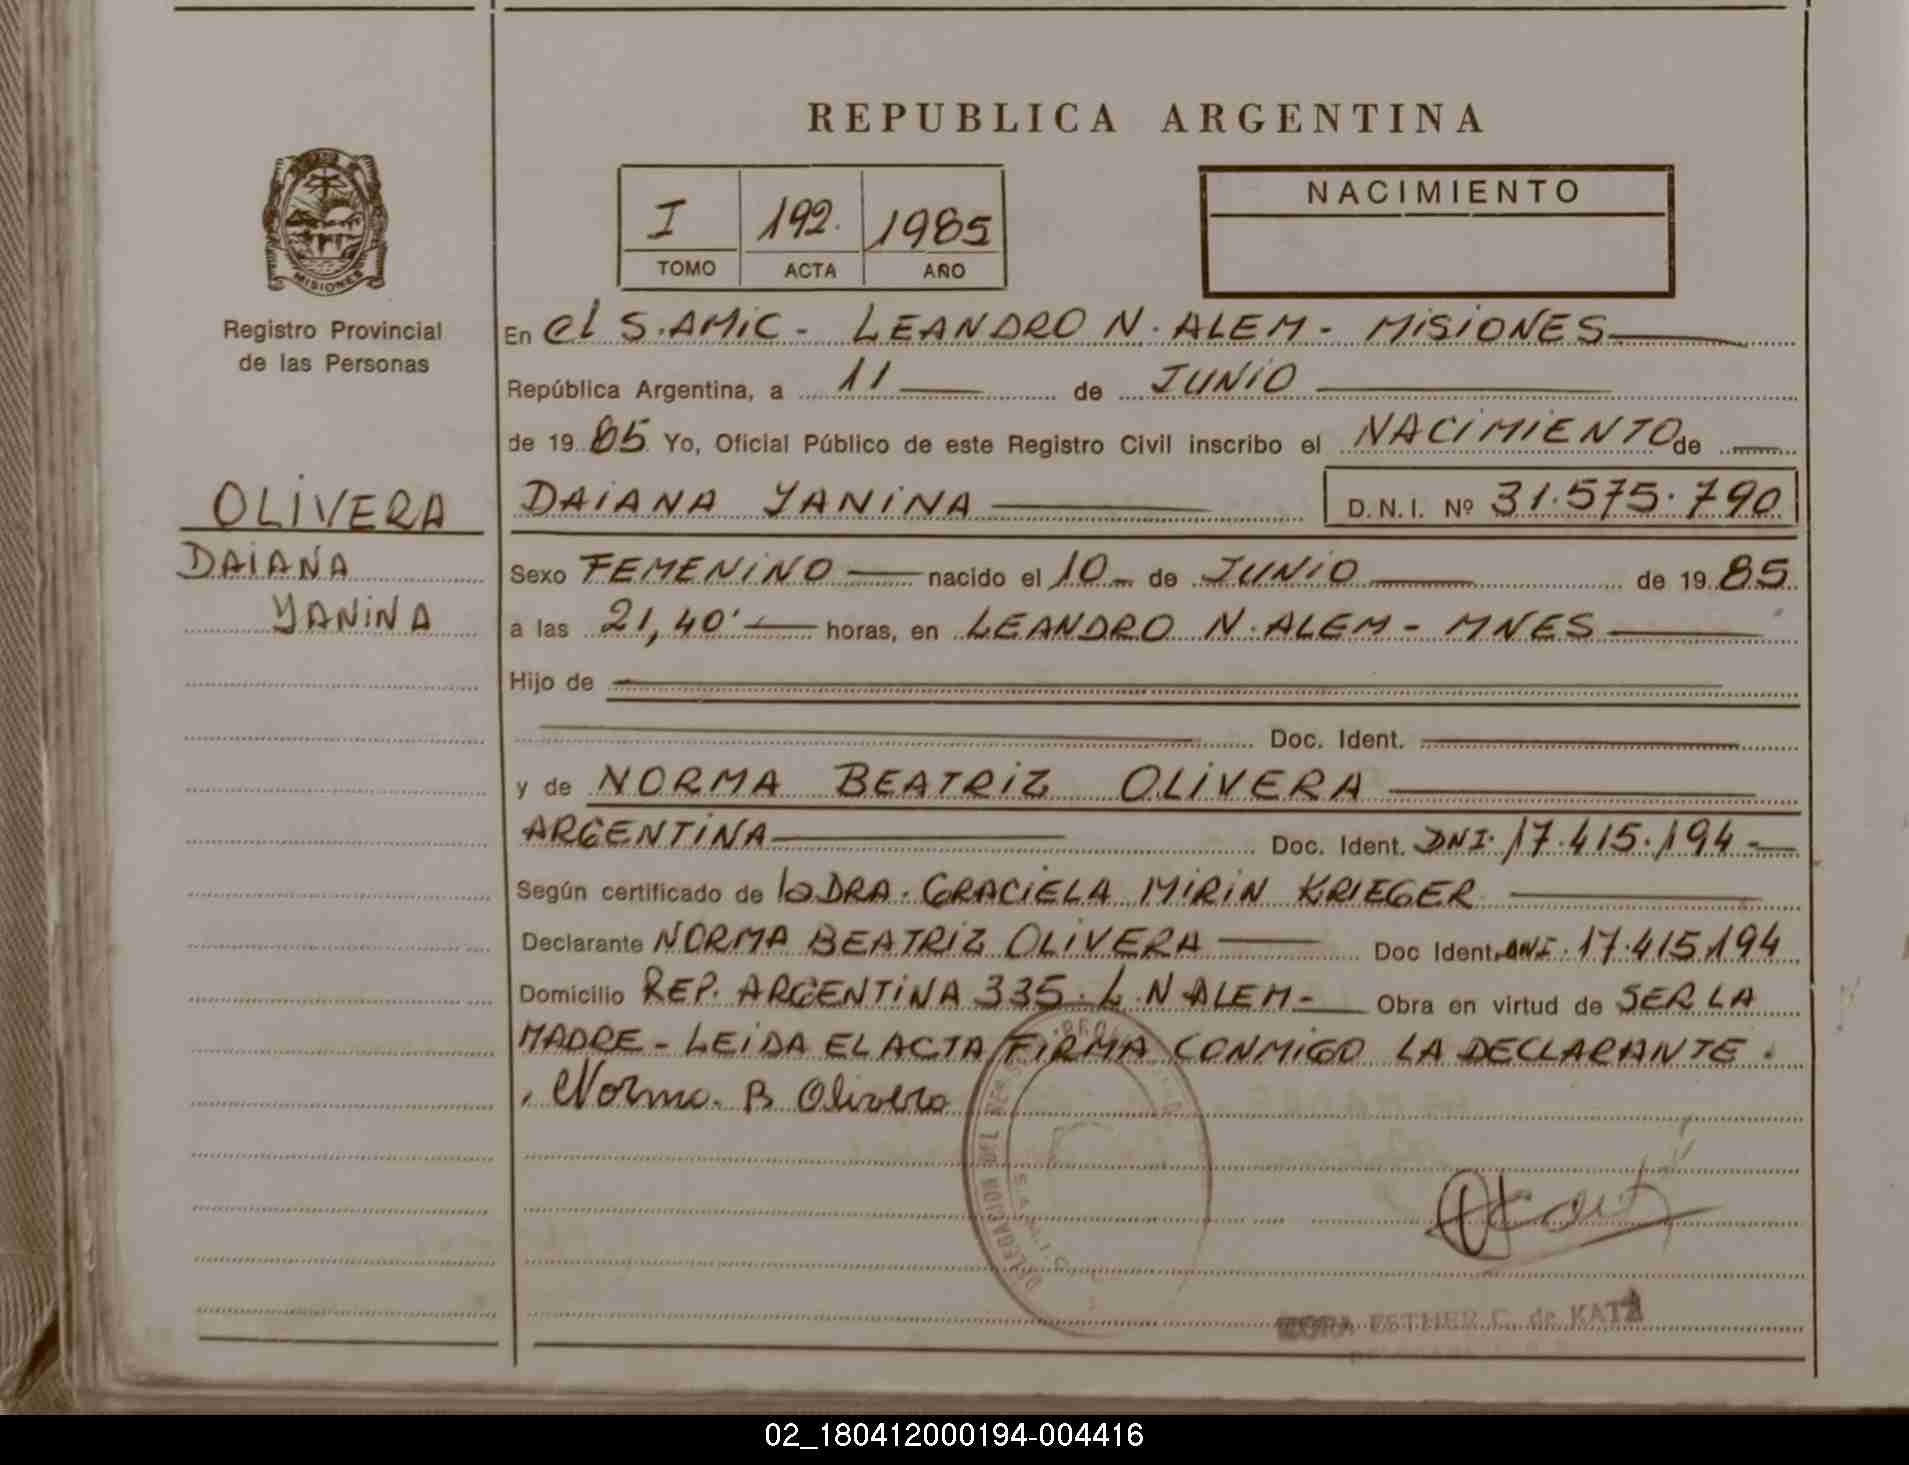 REPUBLICA ARGENTINA
NACIMIENTO
I 192. 1985
TOMO ACTA AÑO
MISIONES
Registro Provincial
de las Personas
En el S.AMIC - LEANDRO N. ALEM - MISIONES
República Argentina, a 11 de JUNIO
de 19 85 Yo, Oficial Público de este Registro Civil inscribo el NACIMIENTO de
OLIVERA
DAIANA YANINA D.N.I. Nº 31.575.790
DAIANA
YANINA
Sexo FEMENINO nacido el 10 de JUNIO de 19 85
a las 21,40' horas, en LEANDRO N. ALEM - MNES
Hijo de
Doc. Ident.
y de NORMA BEATRIZ OLIVERA
ARGENTINA Doc. Ident. DNI. 17.415.194
Según certificado de la DRA. GRACIELA MIRIN KRIEGER
Declarante NORMA BEATRIZ OLIVERA Doc Ident. DNI. 17.415.194
Domicilio REP. ARGENTINA 335. L.N ALEM - Obra en virtud de SER LA
MADRE - LEIDA EL ACTA FIRMA CONMIGO LA DECLARANTE.
Norma. B Olivera
DELEGACION DEL REG.
ESTHER C. de KATZ
02_180412000194-004416